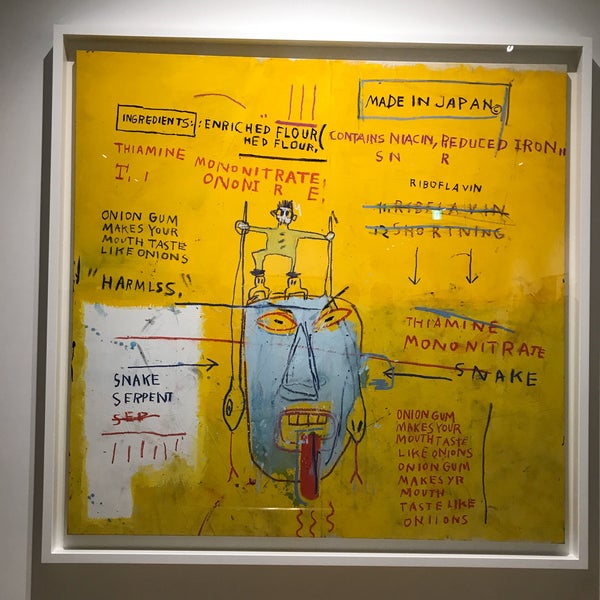 MADE IN JAPAN©
INGREDIENTS: : ENRICHED FLOUR (
HED FLOUR,
CONTAINS NIACIN, REDUCED IRON,,
S N R
THIAMINE MONONITRATE,
I, I ONONI R E,
RIBOFLAVIN
11. RIBFLAVIN
12 SHORTNING
ONION GUM
MAKES YOUR
MOUTH TASTE
LIKE ONIONS
"HARMLSS,"
THIAMINE
MONONITRATE
SNAKE
SERPENT
SEP
SNAKE
ONION GUM
MAKES YOUR
MOUTH TASTE
LIKE ONIONS
ONION GUM
MAKES YR
MOUTH
TASTE LIKE
ONIIONS